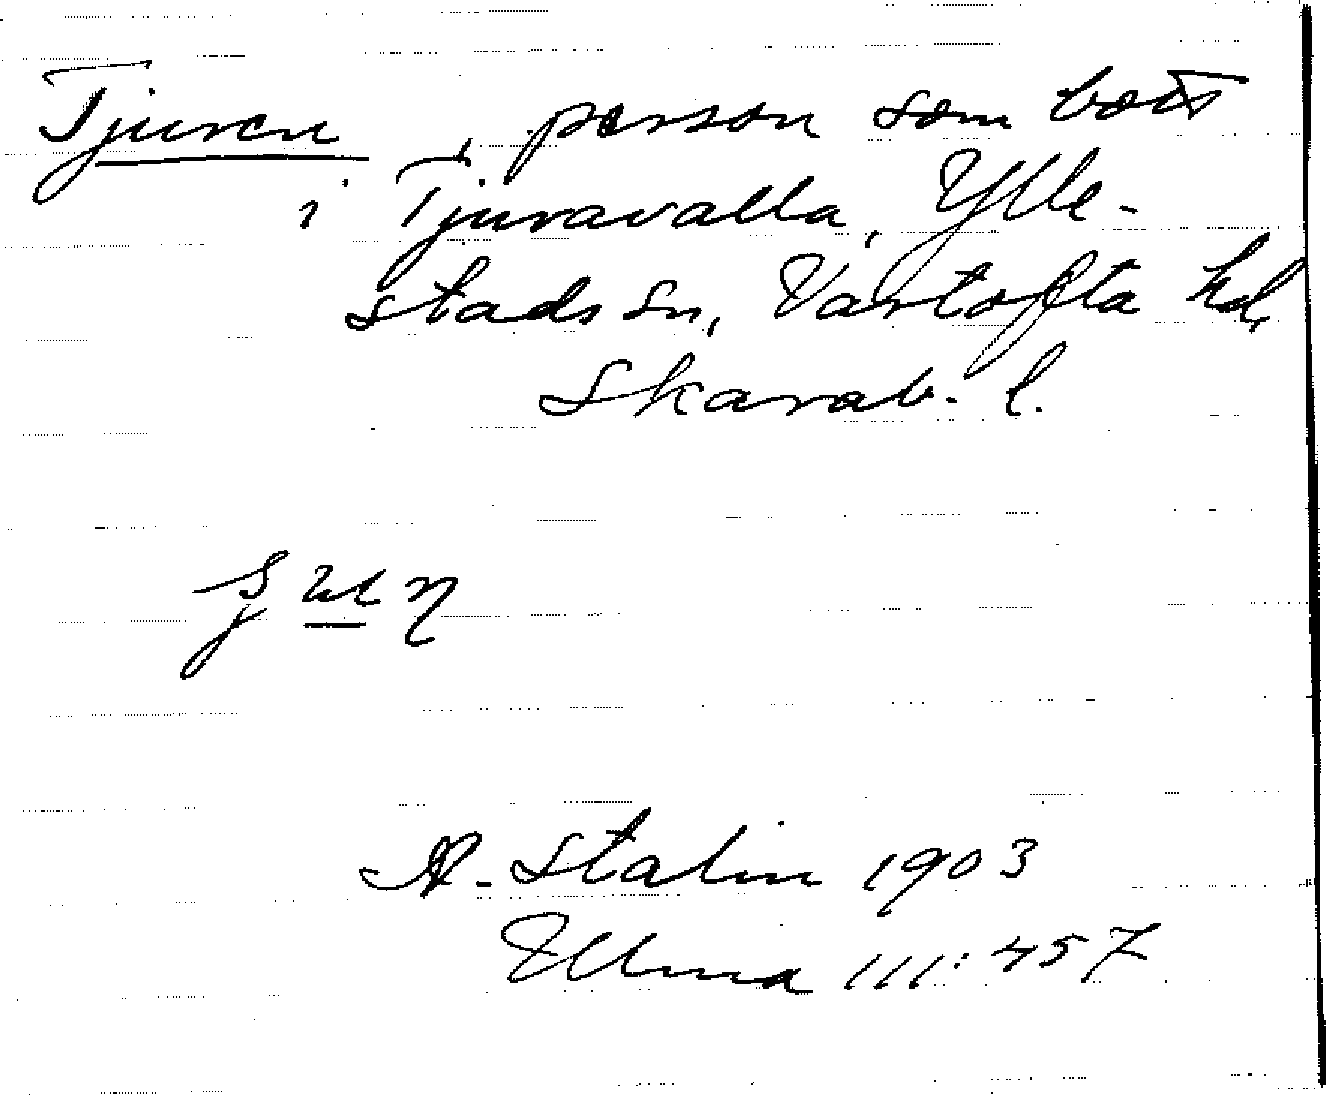 Tjuren, person som bott
i Tjuravalla, Ylle-
stads sn, Vartofta hd,
Skarab. l.
A. Stalin 1903
Ulma 111:457